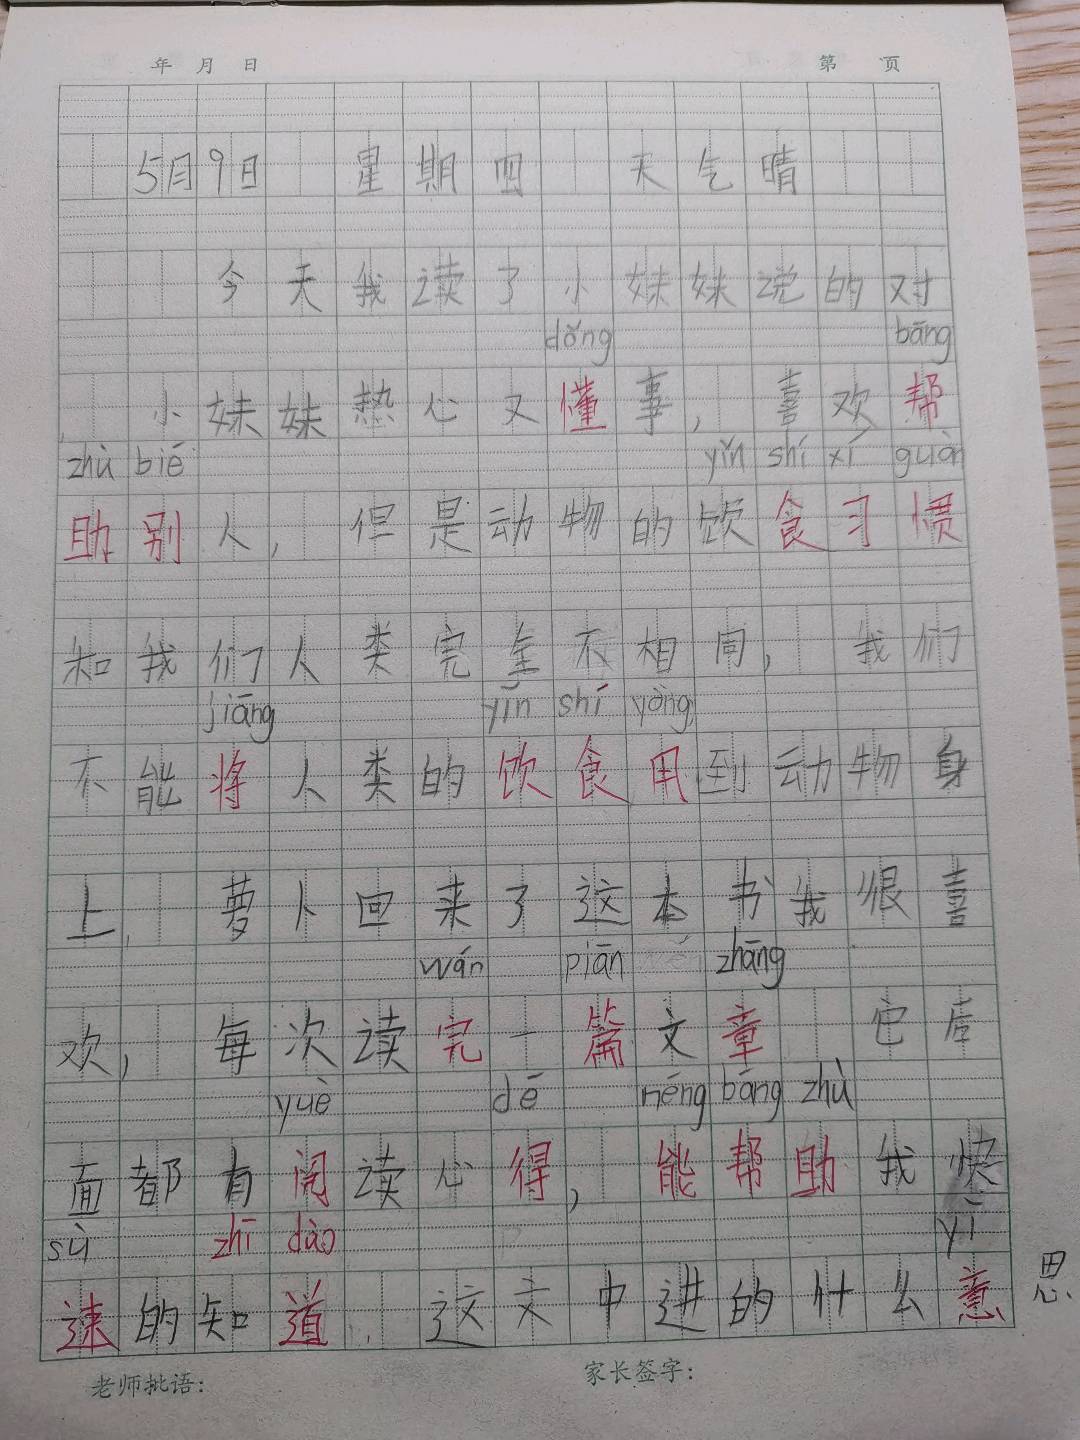 年 月 日 第 页
5月9日 星期四 天气晴
今天我读了小妹妹说的对
dǒng bāng
,小妹妹热心又懂事,喜欢帮
zhù bié yǐn shí xí guàn
助别人,但是动物的饮食习惯
和我们人类完全不相同,我们
jiāng yǐn shí yòng
不能将人类的饮食用到动物身
上,萝卜回来了这本书我很喜
wán piān zhāng
欢,每次读完一篇文章,它后
yuè dé néng bāng zhù
面都有阅读心得,能帮助我快
sù zhī dào yì
速的知道,这文中讲的什么意思
老师批语: 家长签字: